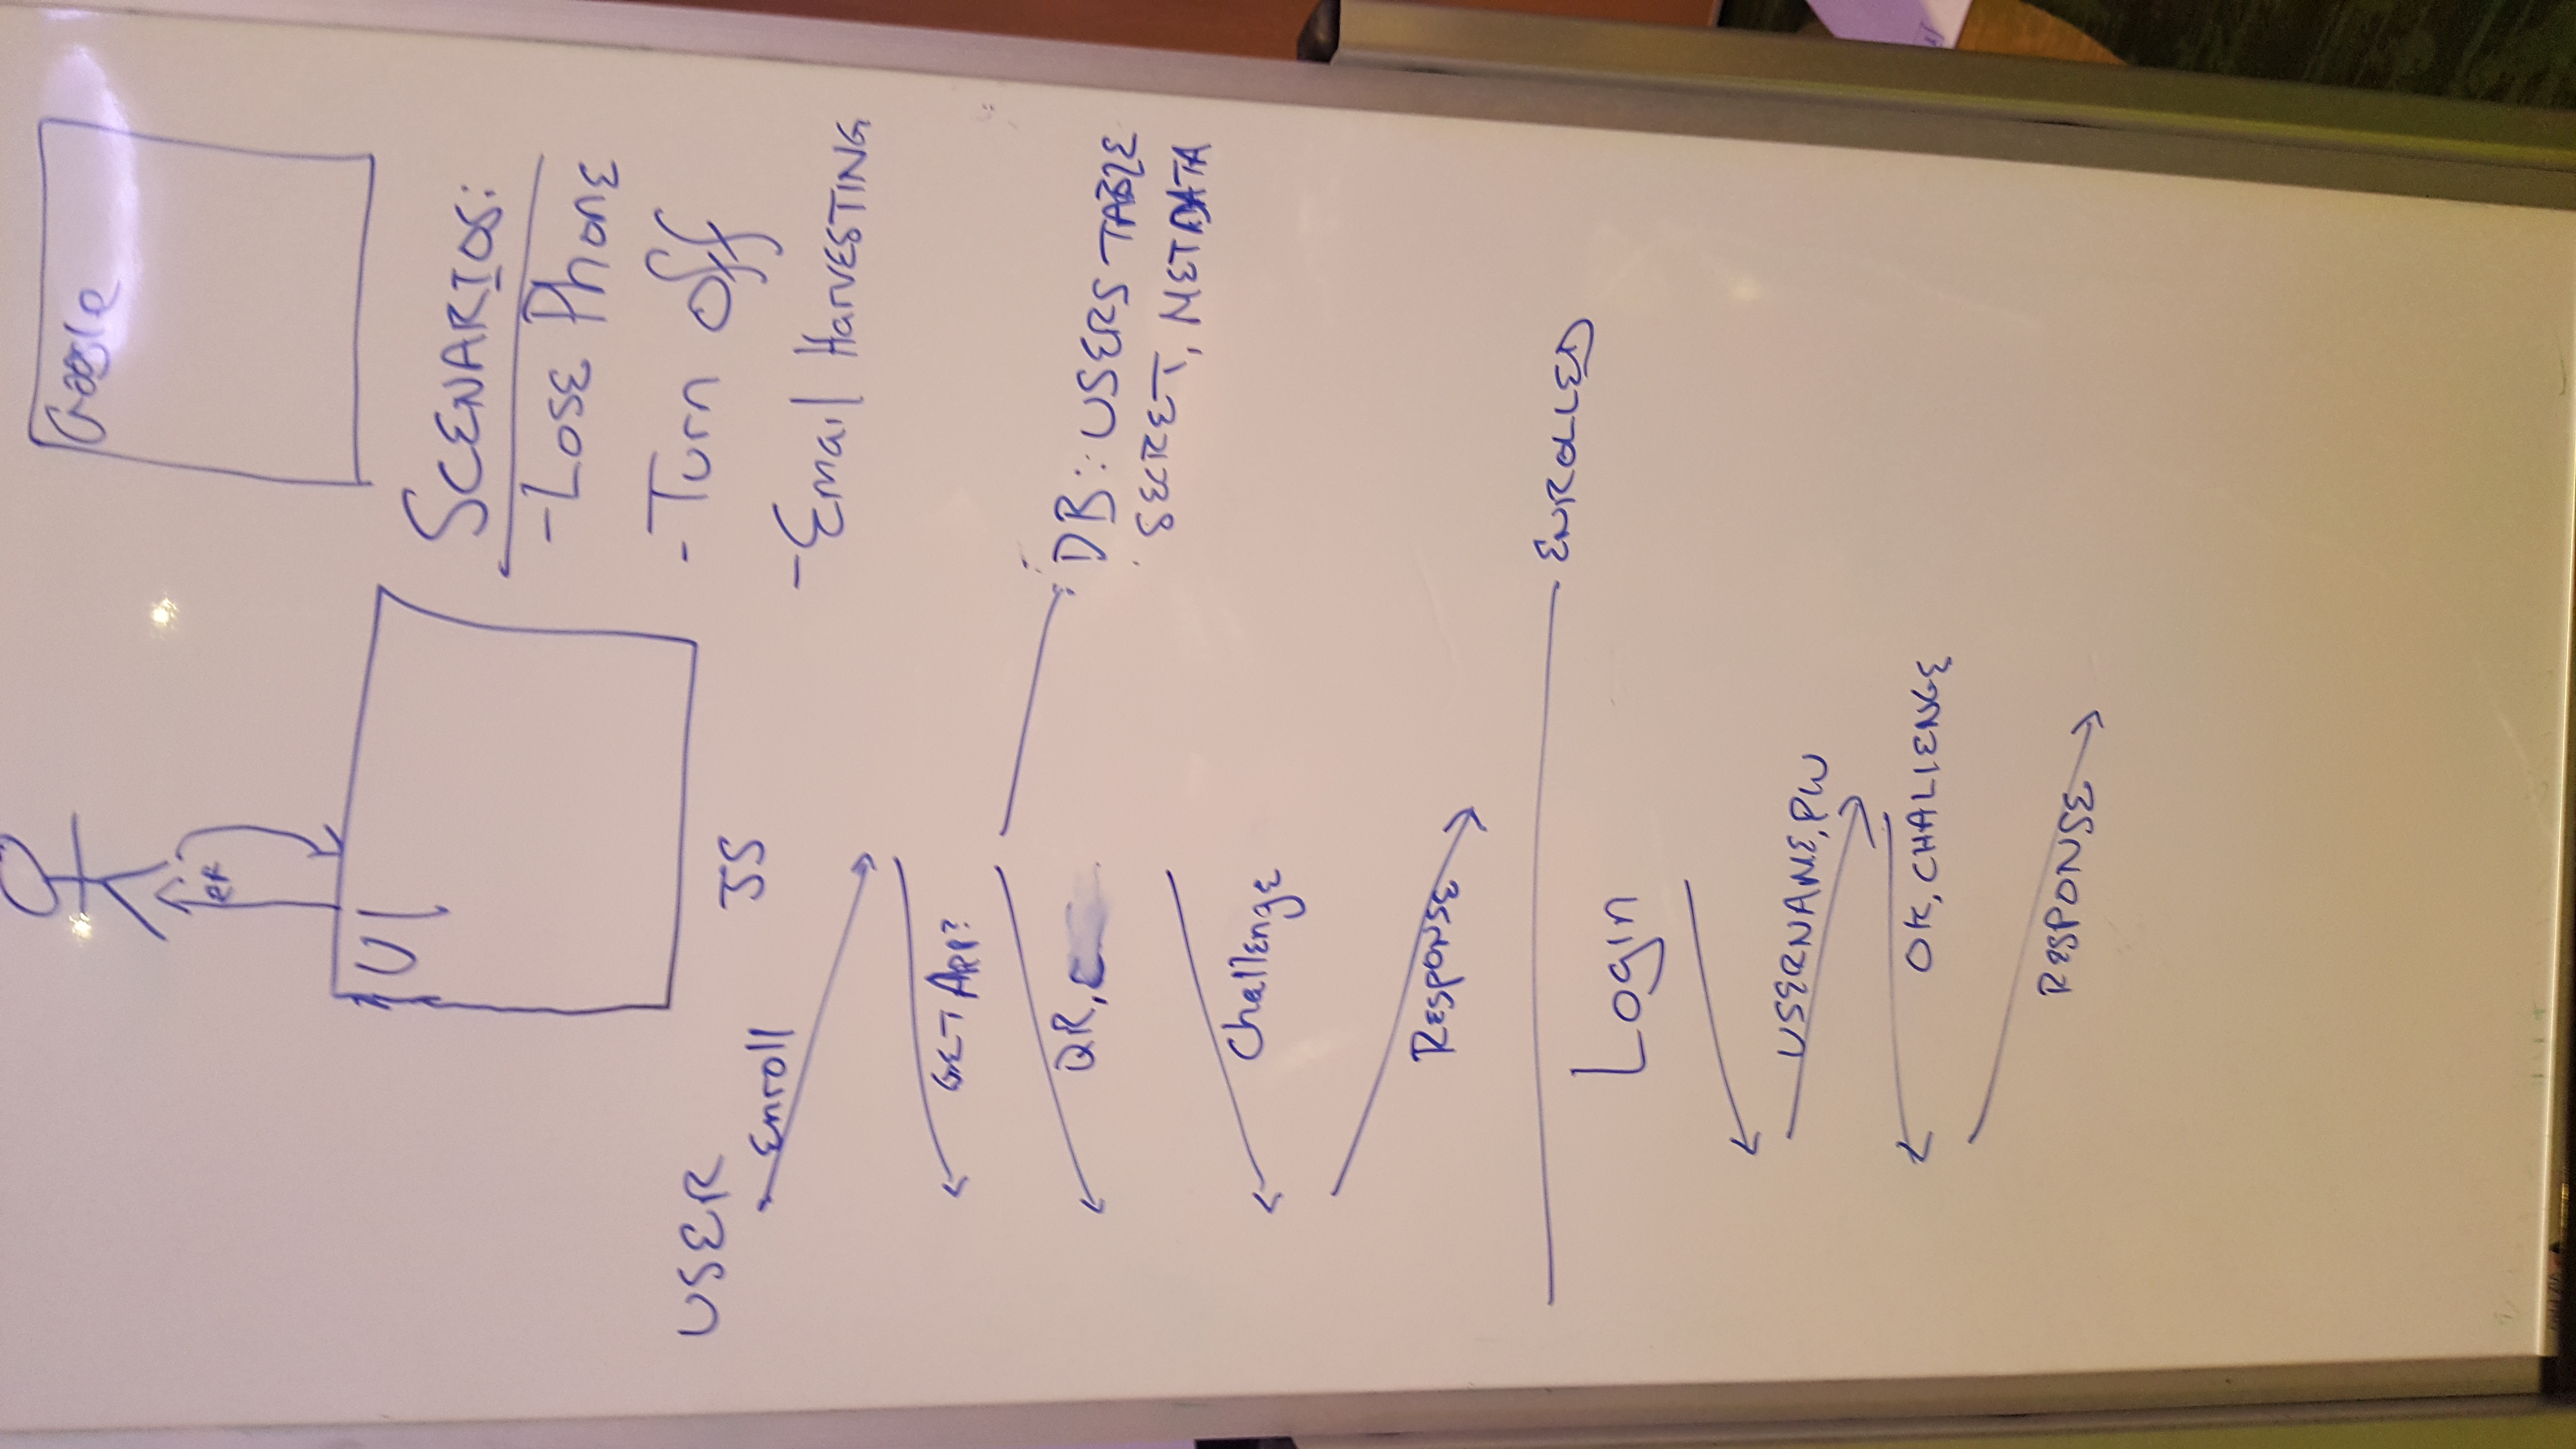 Google
UI
SCENARIOS:
- LOSE PhONE
- Turn Off
- Email HARVESTING
USER
JS
Enroll
GET App?
QR,
DB: USERS TABLE
SECRET, METADATA
Challenge
RESPONSE
ENROLLED
Login
USERNAME, PW
OK, CHALLENGE
RESPONSE